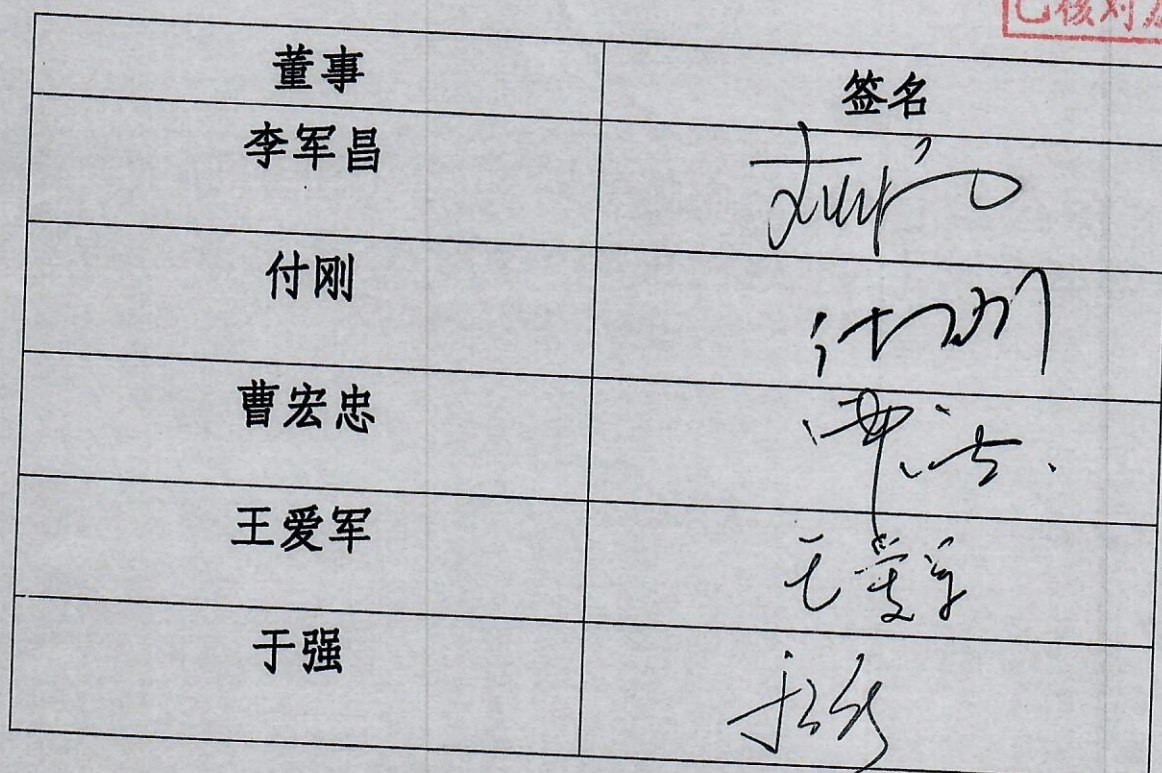 已核对
董事 签名
李军昌
付刚 付刚
曹宏忠
王爱军 王爱军
于强 于强